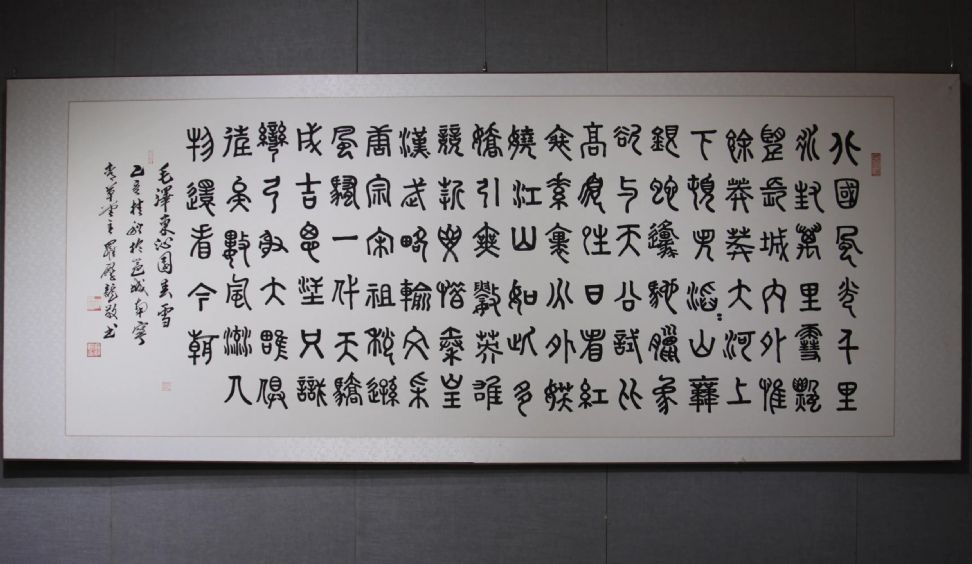 北國風光千里
冰封萬里雪飄
望長城內外惟
餘莽莽大河上
下頓失滔〻山舞
銀蛇原馳臘象
欲与天公試比
高須晴日看紅
裝素裹分外妖
嬈江山如此多
嬌引無數英雄
競折腰惜秦皇
漢武略輸文采
唐宗宋祖稍遜
風騷一代天驕
成吉思汗只識
彎弓射大雕俱
往矣數風流人
物還看今朝
毛澤東沁園春雪
乙亥桂秋於邕城南寧
草堂主羅敬书